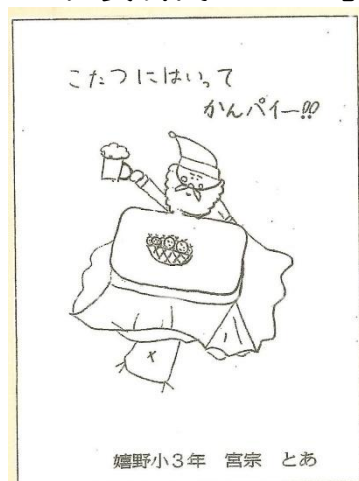 こたつにはいって
かんパイー!!
嬉野小3年 宮宗 とあ